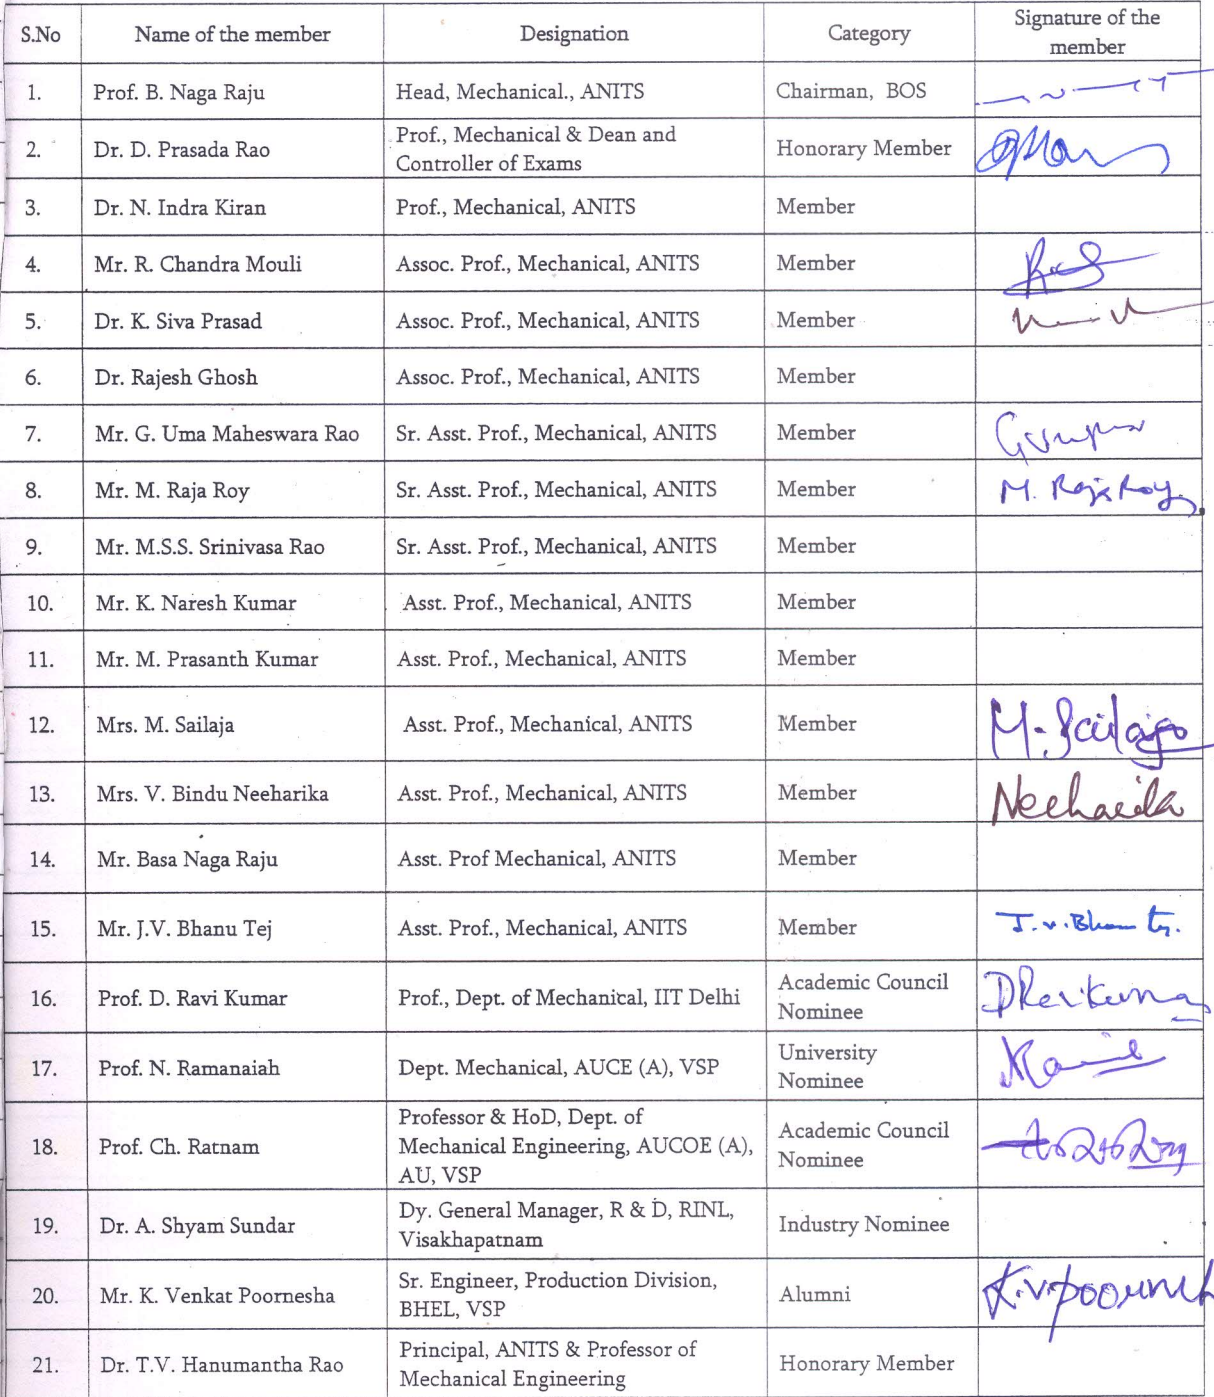 S.No Name of the member Designation Category Signature of the
member
1. Prof. B. Naga Raju Head, Mechanical., ANITS Chairman, BOS
2. Dr. D. Prasada Rao Prof., Mechanical & Dean and
Controller of Exams Honorary Member
3. Dr. N. Indra Kiran Prof., Mechanical, ANITS Member
4. Mr. R. Chandra Mouli Assoc. Prof., Mechanical, ANITS Member
5. Dr. K. Siva Prasad Assoc. Prof., Mechanical, ANITS Member
6. Dr. Rajesh Ghosh Assoc. Prof., Mechanical, ANITS Member
7. Mr. G. Uma Maheswara Rao Sr. Asst. Prof., Mechanical, ANITS Member
8. Mr. M. Raja Roy Sr. Asst. Prof., Mechanical, ANITS Member M. Raja Roy
9. Mr. M.S.S. Srinivasa Rao Sr. Asst. Prof., Mechanical, ANITS Member
10. Mr. K. Naresh Kumar Asst. Prof., Mechanical, ANITS Member
11. Mr. M. Prasanth Kumar Asst. Prof., Mechanical, ANITS Member
12. Mrs. M. Sailaja Asst. Prof., Mechanical, ANITS Member M. Sailaja
13. Mrs. V. Bindu Neeharika Asst. Prof., Mechanical, ANITS Member Neeharika
14. Mr. Basa Naga Raju Asst. Prof Mechanical, ANITS Member
15. Mr. J.V. Bhanu Tej Asst. Prof., Mechanical, ANITS Member J.V. Bhanu Tej.
16. Prof. D. Ravi Kumar Prof., Dept. of Mechanical, IIT Delhi Academic Council
Nominee DRavikumar
17. Prof. N. Ramanaiah Dept. Mechanical, AUCE (A), VSP University
Nominee
18. Prof. Ch. Ratnam Professor & HoD, Dept. of
Mechanical Engineering, AUCOE (A),
AU, VSP Academic Council
Nominee
19. Dr. A. Shyam Sundar Dy. General Manager, R & D, RINL,
Visakhapatnam Industry Nominee
20. Mr. K. Venkat Poornesha Sr. Engineer, Production Division,
BHEL, VSP Alumni K.V.Poornesh
21. Dr. T.V. Hanumantha Rao Principal, ANITS & Professor of
Mechanical Engineering Honorary Member